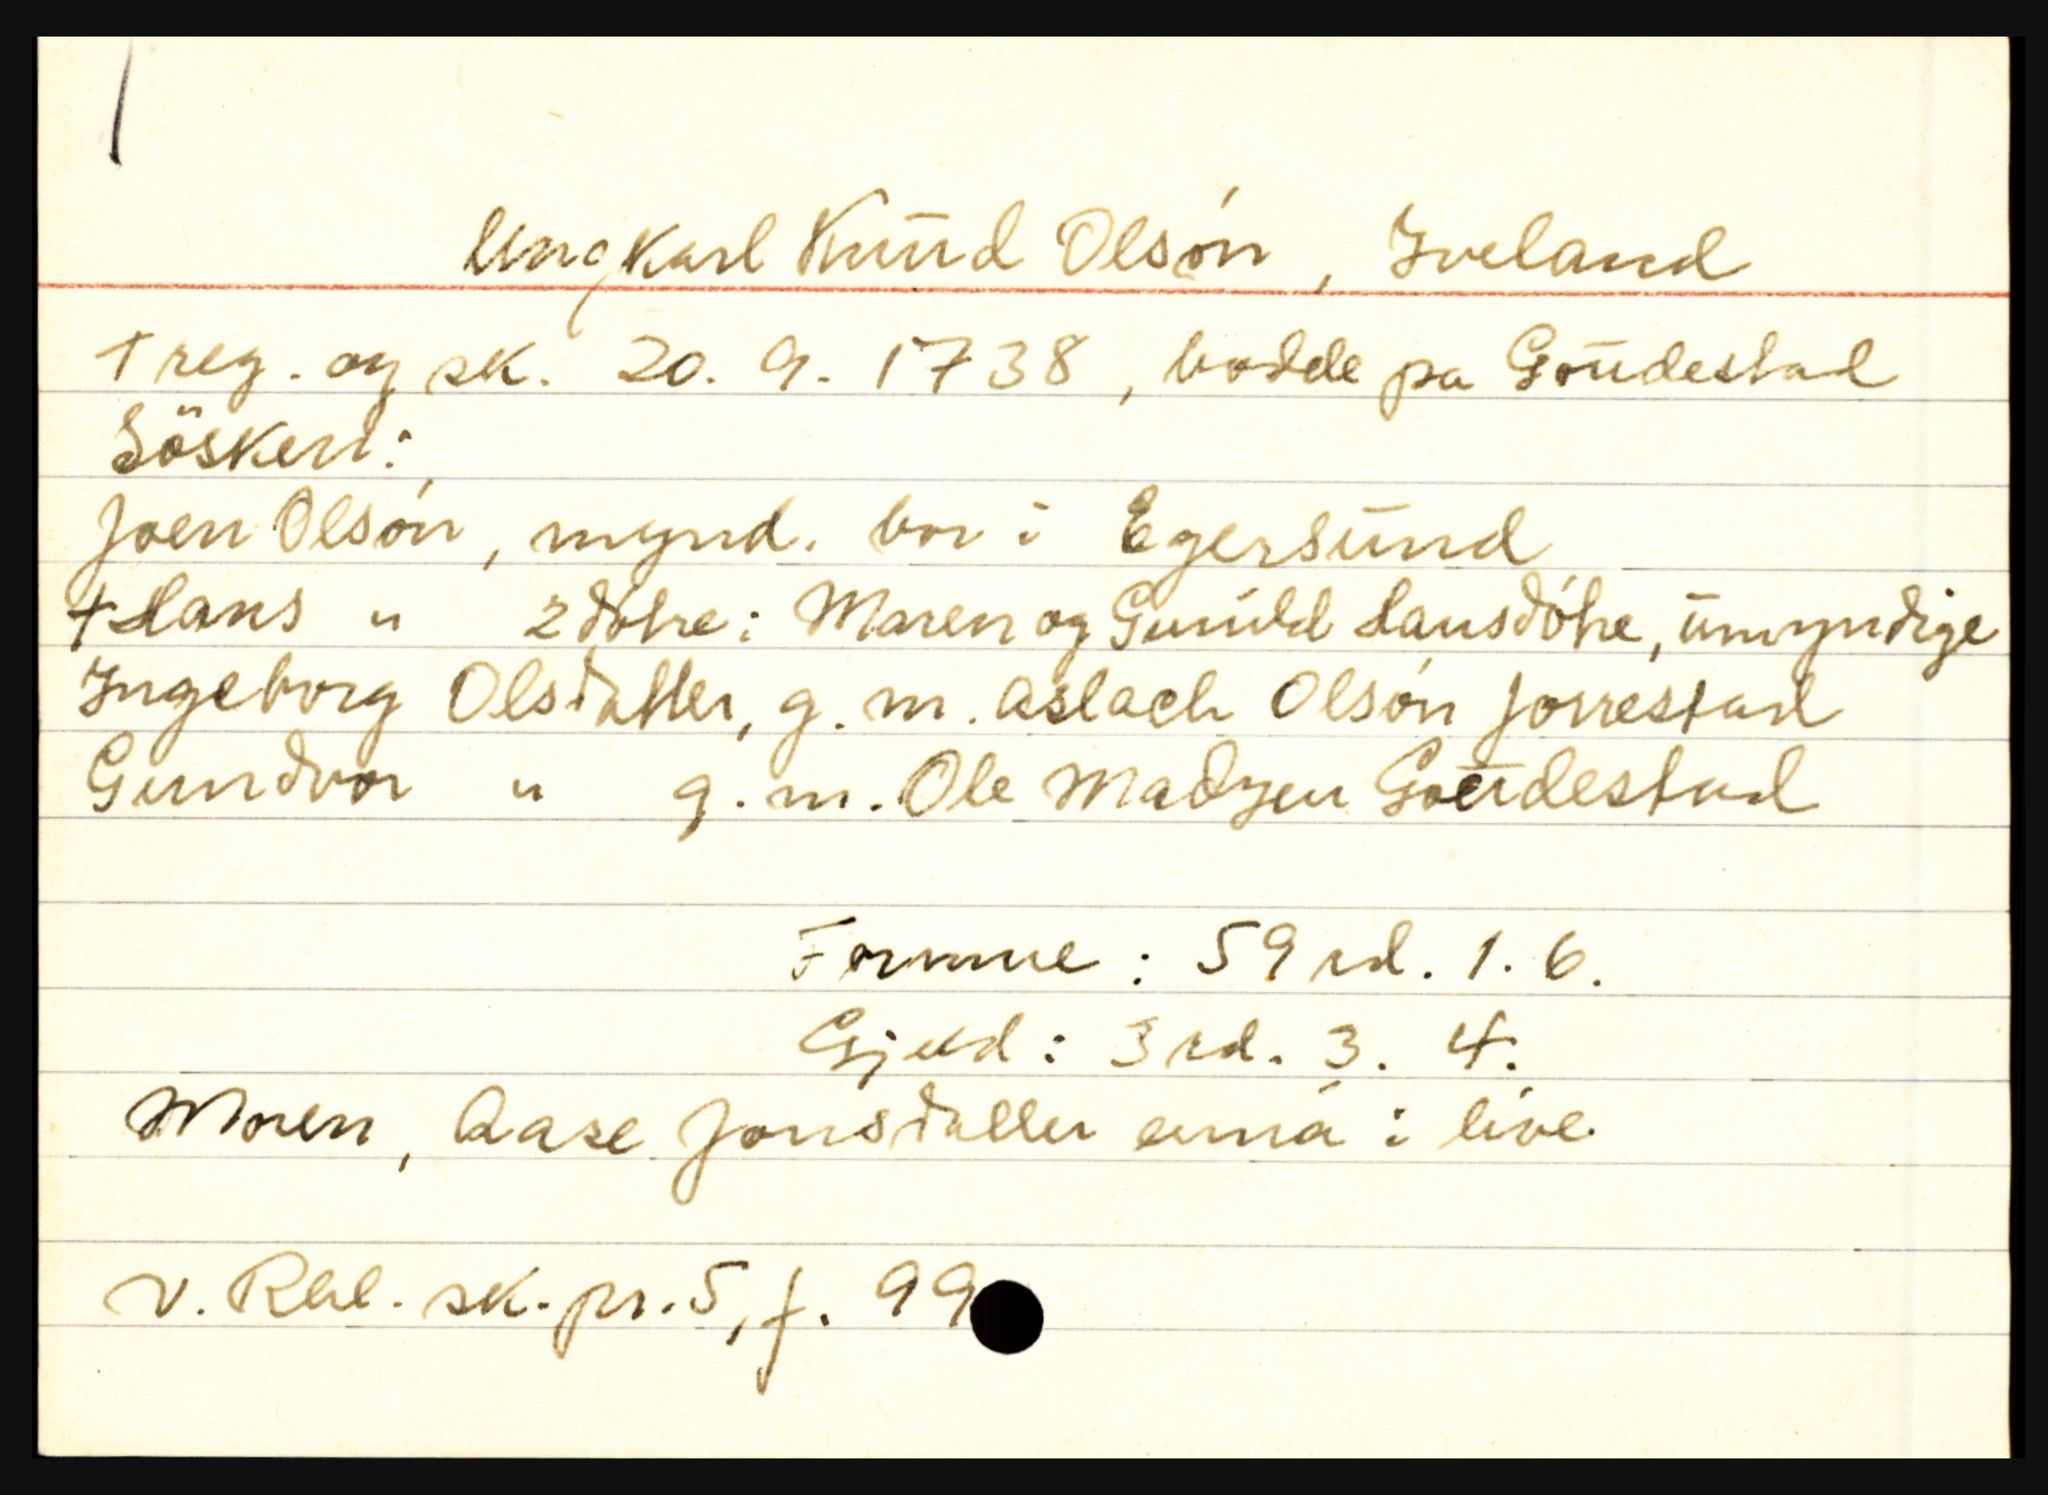 Ungkarl Knud Olsön, Iveland
† reg. og sk. 20. 9. 1738, bodde pa Goudestad
Sösken:
Joen Olsön, mynd. bor i Egersund
† Hans " 2 döhre: Maren og Gunild Hansdöhre, umyndige
Ingeborg Olsdatter, g. m. Aslach Olsön Jorrestad
Gundvor " g. m. Ole Madzen Goudestad
Formue: 59 rd. 1. 6.
Gjeld: 3 rd. 3. 4.
Moren, Aase Jonsdatter enná i live
V. Rbl. sk. pr. 5, f. 99